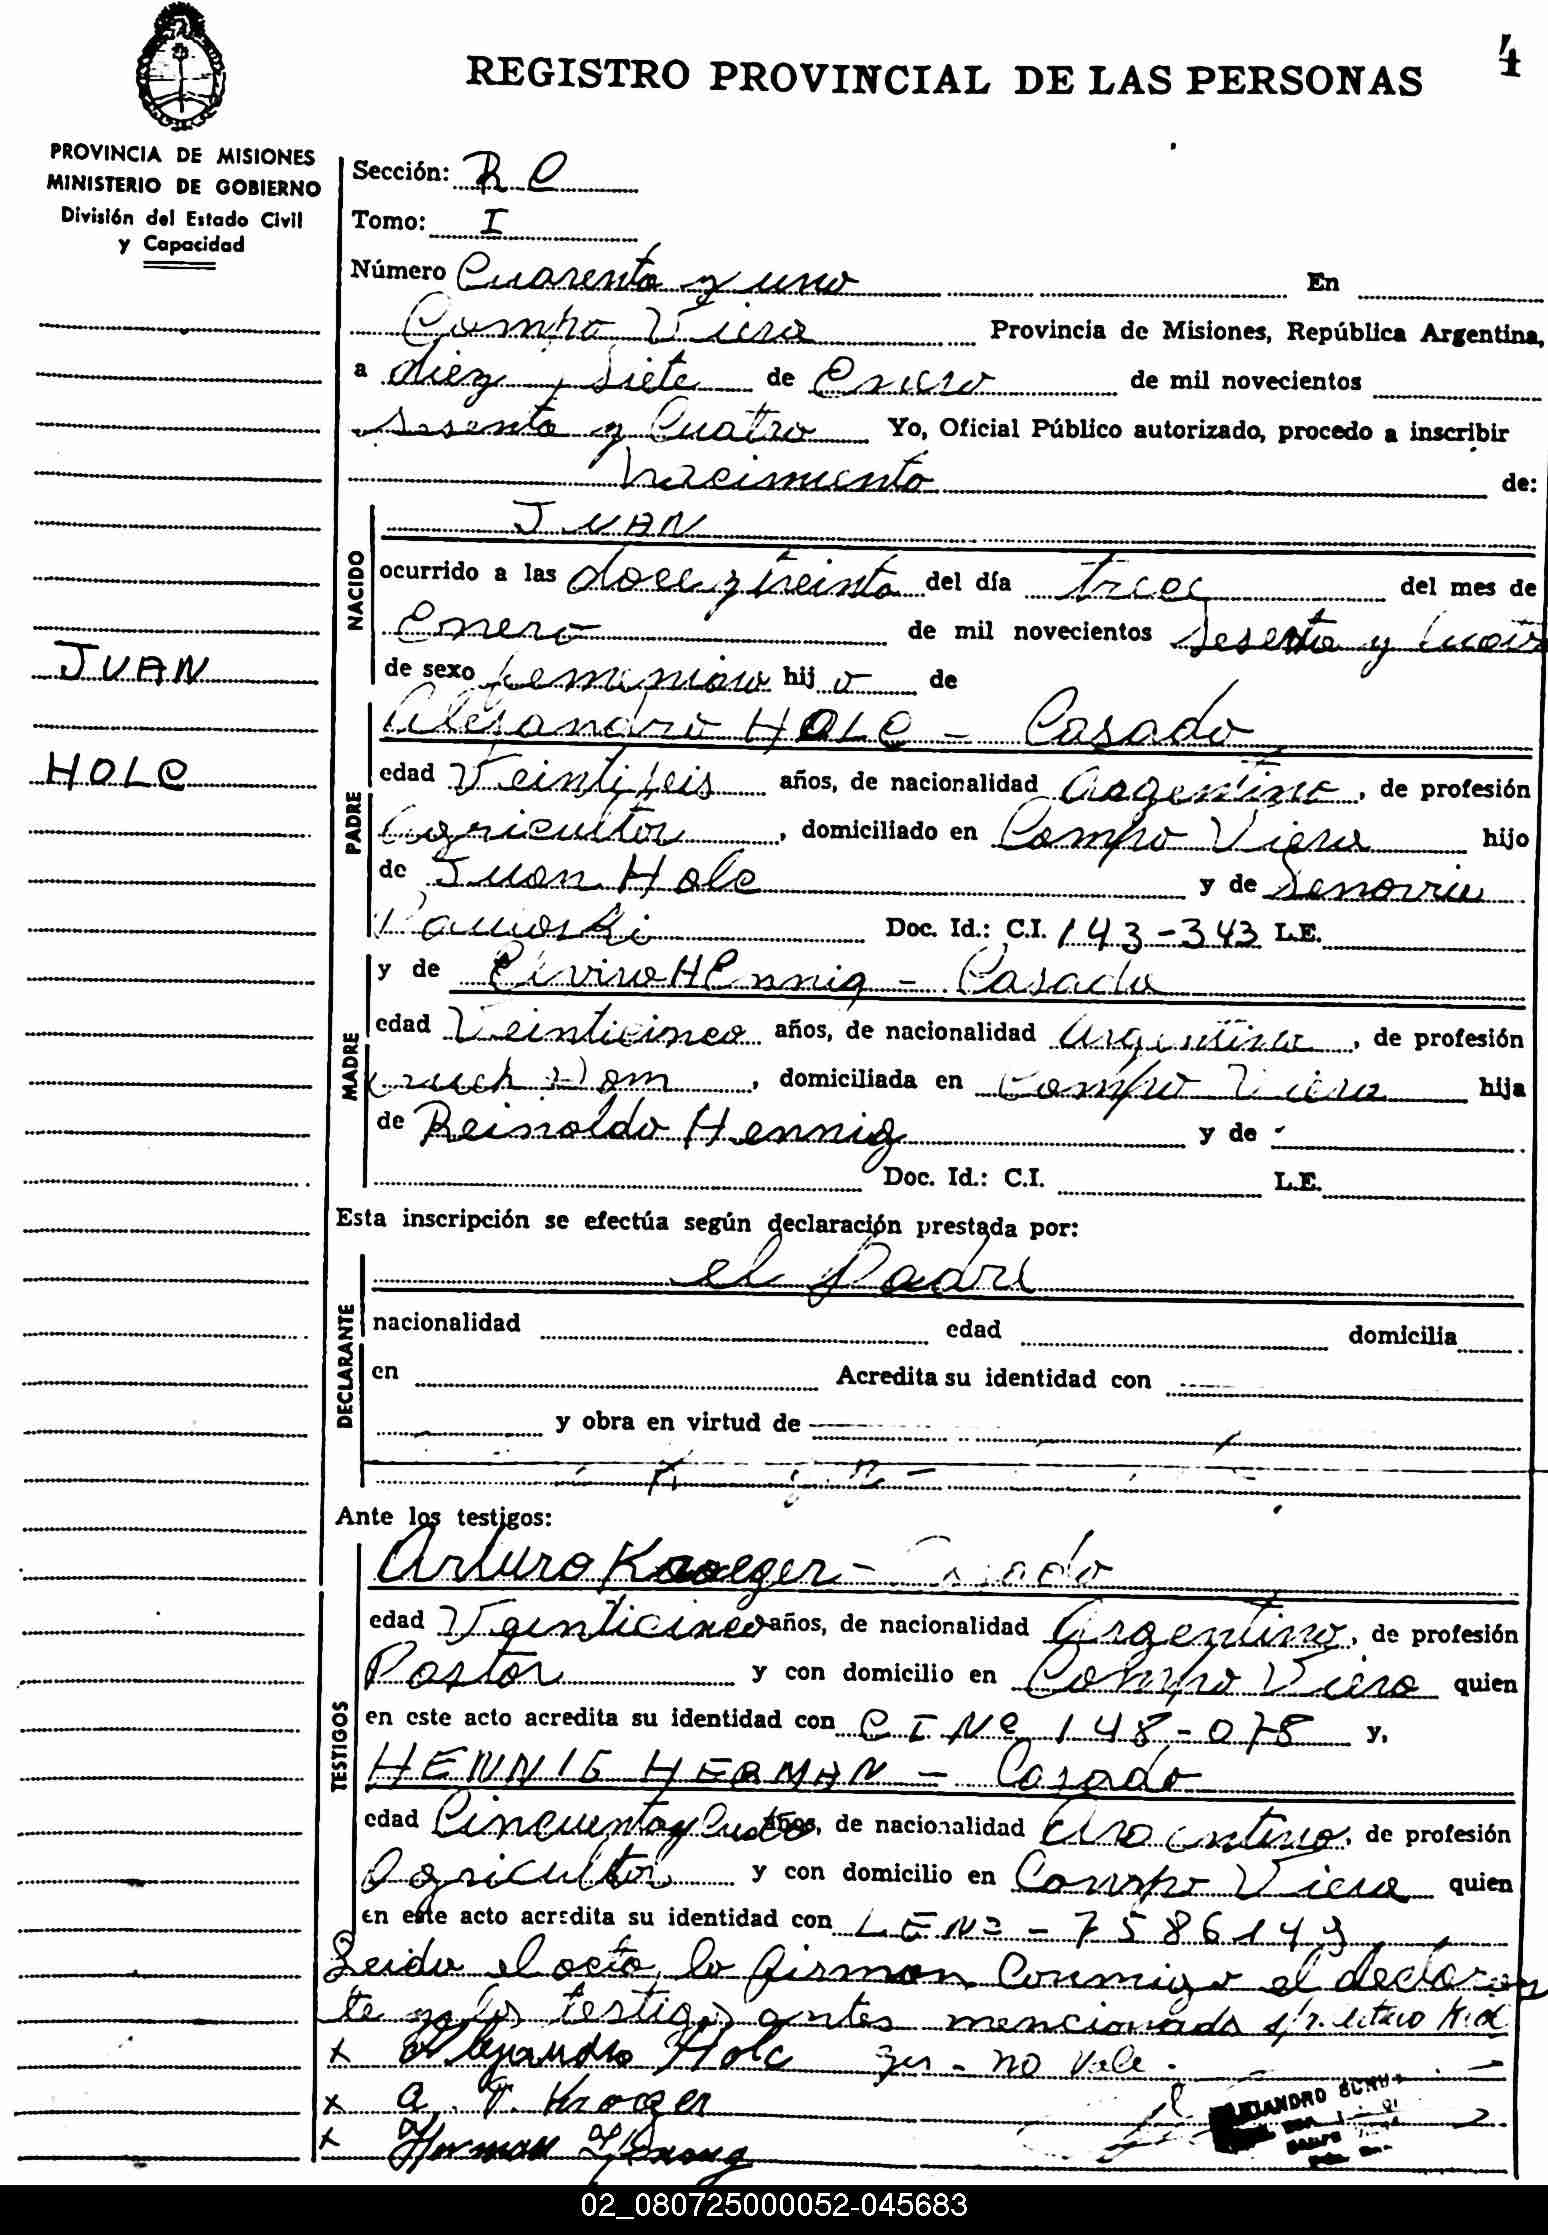 REGISTRO PROVINCIAL DE LAS PERSONAS
4
PROVINCIA DE MISIONES
MINISTERIO DE GOBIERNO
División del Estado Civil
y Capacidad
Sección: R C
Tomo: I
Número Cuarenta y uno En
Campo Viera Provincia de Misiones, República Argentina,
a diez y siete de Enero de mil novecientos
sesenta y cuatro Yo, Oficial Público autorizado, procedo a inscribir
nacimiento de:
NACIDO
JUAN
ocurrido a las doce y treinta del día trece del mes de
Enero de mil novecientos sesenta y cuatro
de sexo femenino hij o de
JUAN
HOLC
PADRE
Alejandro HOLC - Casado
edad Veintiseis años, de nacionalidad Argentino, de profesión
Agricultor, domiciliado en Campo Viera hijo
de Juan Holc y de
Doc. Id.: C.I. 143-343 L.E.
MADRE
y de Elvira HEnnig - Casada
edad Veinticinco años, de nacionalidad Argentina, de profesión
, domiciliada en Campo Viera hija
de Reinoldo Hennig y de
Doc. Id.: C.I. L.E.
Esta inscripción se efectúa según declaración prestada por:
DECLARANTE
el Padre
nacionalidad edad domicilia
en Acredita su identidad con
y obra en virtud de
Ante los testigos:
TESTIGOS
Arturo Kroeger - Casado
edad Veinticinco años, de nacionalidad Argentino, de profesión
Pastor y con domicilio en Campo Viera quien
en este acto acredita su identidad con C I Nº 148-078 y,
HENNIG HERMAN - Casado
edad Cincuenta y cuatro años, de nacionalidad Argentino, de profesión
Agricultor y con domicilio en Campo Viera quien
en este acto acredita su identidad con L E Nº - 7586143
Leido el acta, lo firman conmigo el declaran
te y los testigos antes mencionado
x Alejandro Holc no vale.
x A. Kroeger
x Herman
02_080725000052-045683